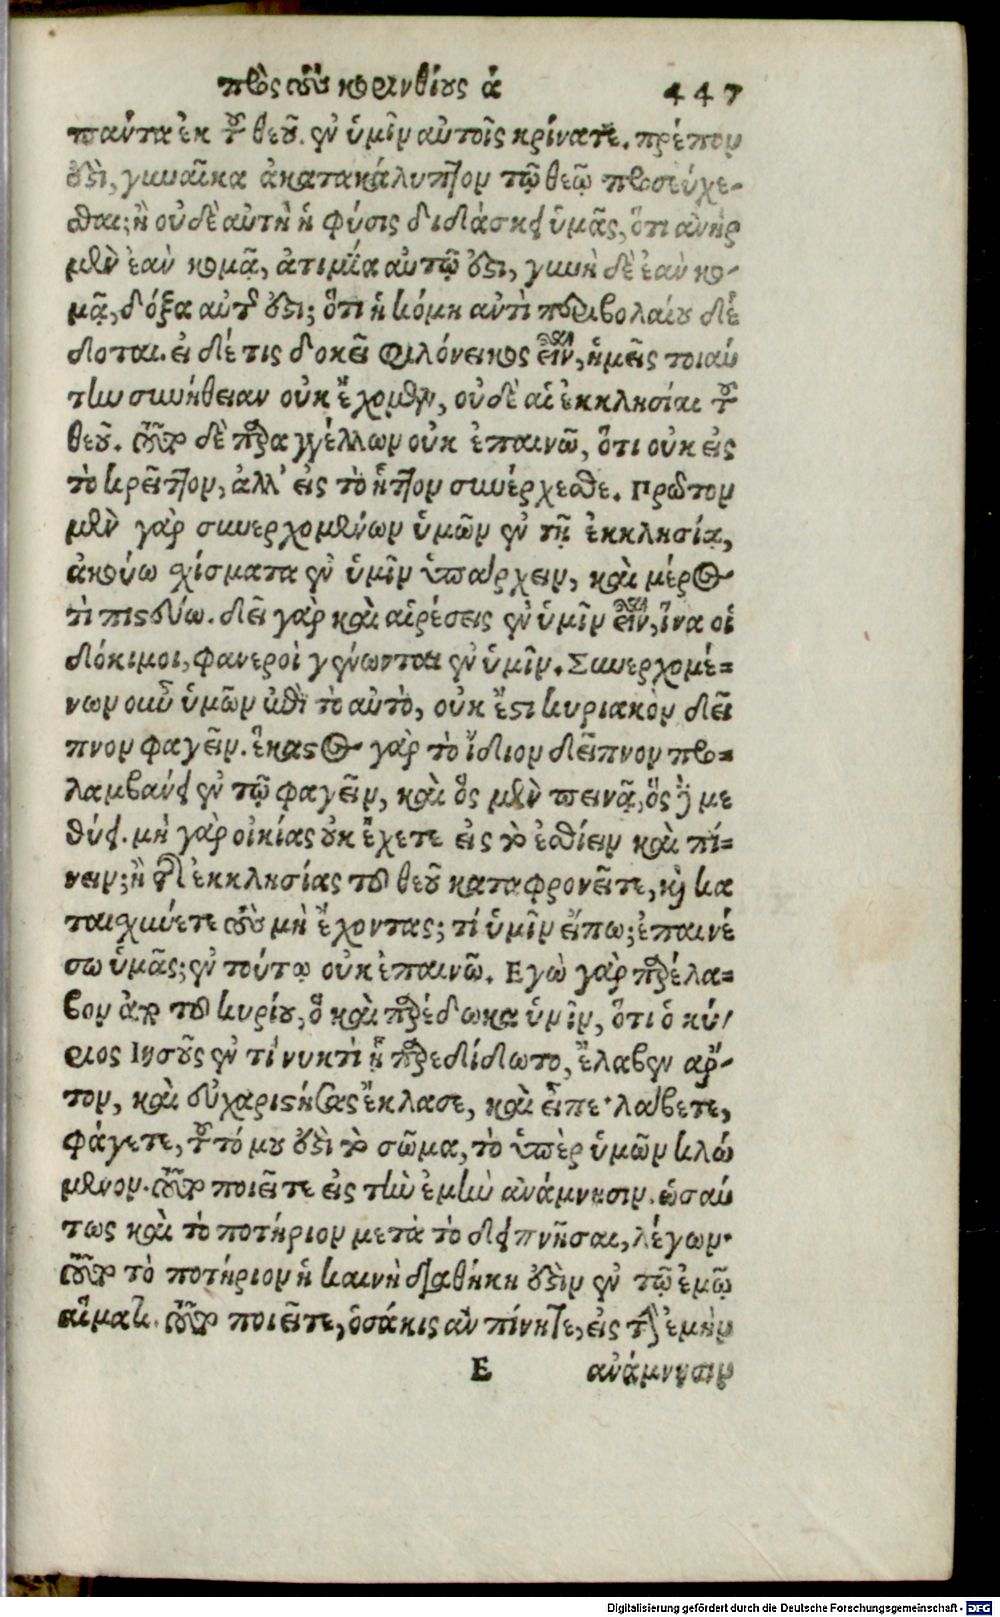 πρὸς τοὺς κορινθίους ά 447
πάντα ἐκ τοῦ θεοῦ. ἐν ὑμῖν αὐτοῖς κρίνατε. πρέπον
ἐστὶ, γυναῖκα ἀκατακάλυπτον τῷ θεῷ προσεύχε-
σθαι; ἢ οὐδὲ αὐτὴ ἡ φύσις διδάσκει ὑμᾶς, ὅτι ἀνὴρ
μὲν ἐὰν κομᾷ, ἀτιμία αὐτῷ ἐστι, γυνὴ δὲ ἐὰν κο-
μᾷ, δόξα αὐτῇ ἐστι; ὅτι ἡ κόμη ἀντὶ περιβολαίου δέ
δοται. εἰ δέ τις δοκεῖ φιλόνεικος εἶναι, ἡμεῖς τοιαύ
την συνήθειαν οὐκ ἔχομεν, οὐδὲ αἱ ἐκκλησίαι τοῦ
θεοῦ. τοῦτο δὲ παραγγέλλων οὐκ ἐπαινῶ, ὅτι οὐκ εἰς
τὸ κρεῖττον, ἀλλ' εἰς τὸ ἧττον συνέρχεσθε. Πρῶτον
μὲν γὰρ συνερχομένων ὑμῶν ἐν τῇ ἐκκλησίᾳ,
ἀκούω σχίσματα ἐν ὑμῖν ὑπάρχειν, καὶ μέρος
τὶ πιστεύω. δεῖ γὰρ καὶ αἱρέσεις ἐν ὑμῖν εἶναι, ἵνα οἱ
δόκιμοι, φανεροὶ γένωνται ἐν ὑμῖν. Συνερχομέ=
νων οὖν ὑμῶν ἐπὶ τὸ αὐτὸ, οὐκ ἔστι κυριακὸν δεῖ
πνον φαγεῖν. ἕκαστος γὰρ τὸ ἴδιον δεῖπνον προ=
λαμβάνει ἐν τῷ φαγεῖν, καὶ ὃς μὲν πεινᾷ, ὃς δὲ με
θύει. μὴ γὰρ οἰκίας οὐκ ἔχετε εἰς τὸ ἐσθίειν καὶ πί=
νειν; ἢ τῆς ἐκκλησίας τοῦ θεοῦ καταφρονεῖτε, καὶ κα
ταισχύνετε τοὺς μὴ ἔχοντας; τί ὑμῖν εἴπω; ἐπαινέ
σω ὑμᾶς; ἐν τούτῳ οὐκ ἐπαινῶ. Εγὼ γὰρ παρέλα=
βον ἀπὸ τοῦ κυρίου, ὃ καὶ παρέδωκα ὑμῖν, ὅτι ὁ κύ/
ριος Ιησοῦς ἐν τῇ νυκτὶ ᾗ παρεδίδοτο, ἔλαβεν ἄρ-
τον, καὶ εὐχαριστήσας ἔκλασε, καὶ εἶπε· λάβετε,
φάγετε, τοῦτό μου ἐστὶ τὸ σῶμα, τὸ ὑπὲρ ὑμῶν κλώ
μενον. τοῦτο ποιεῖτε εἰς τὴν ἐμὴν ἀνάμνησιν. ὡσαύ
τως καὶ τὸ ποτήριον μετὰ τὸ δειπνῆσαι, λέγων·
τοῦτο τὸ ποτήριον ἡ καινὴ διαθήκη ἐστὶν ἐν τῷ ἐμῷ
αἵματι. τοῦτο ποιεῖτε, ὁσάκις ἂν πίνητε, εἰς τὴν ἐμὴν
E ἀνάμνησιν
Digitalisierung gefördert durch die Deutsche Forschungsgemeinschaft - DFG